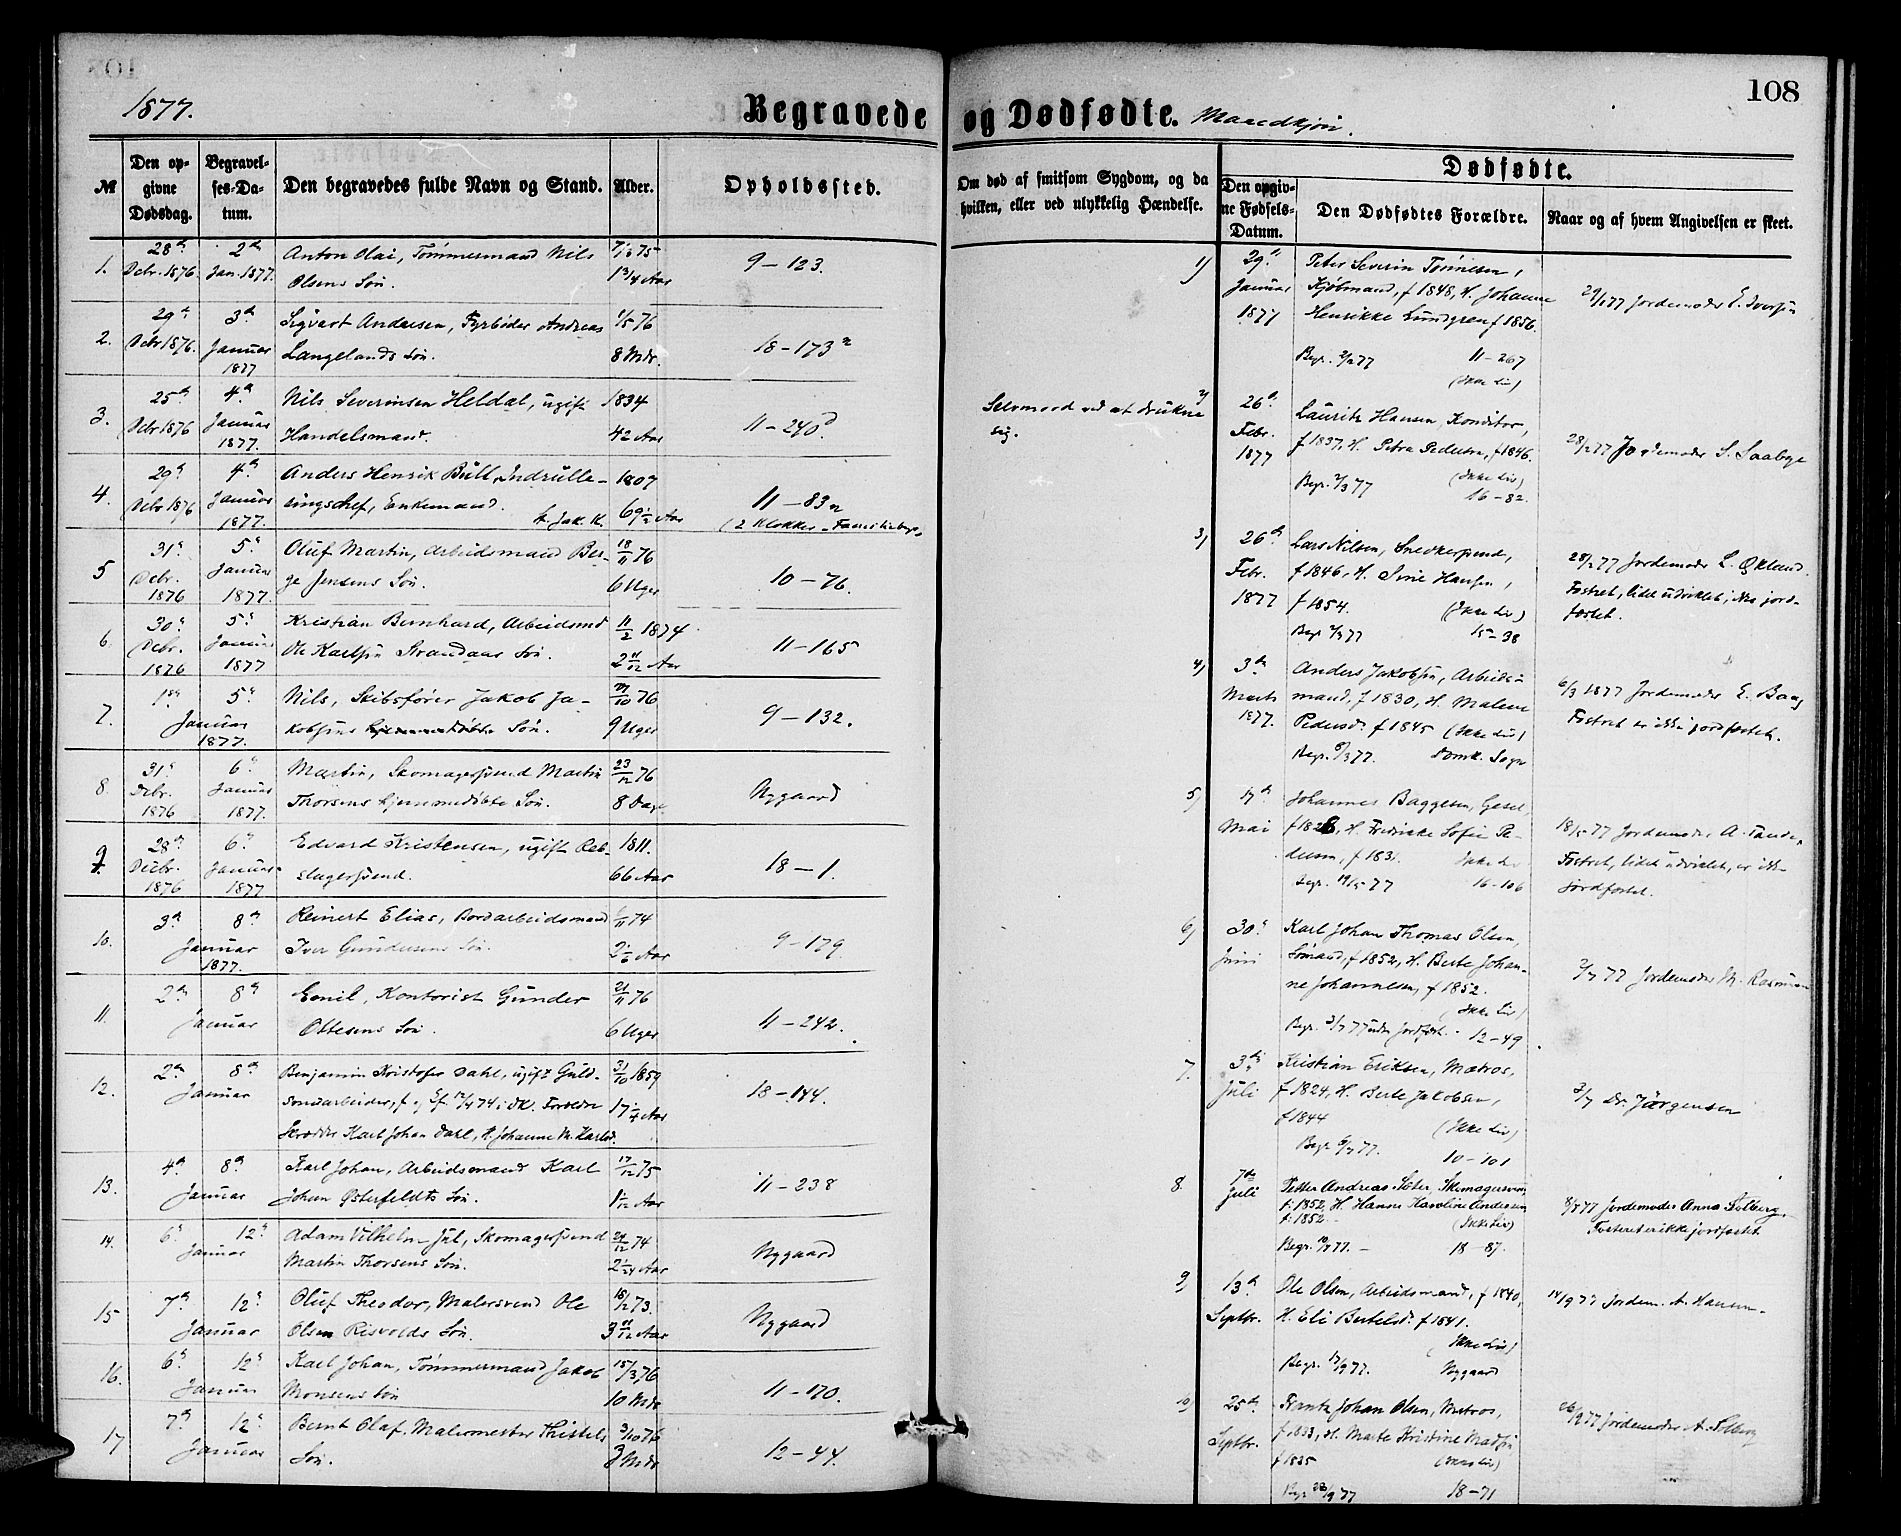 108
1877.
Begravede og Dødfødte. Mandkjøn.
№
Den opgivne Dødsdag.
Begravelses-Datum.
Den begravedes fulde Navn og Stand.
Alder.
Opholdssted.
Om død af smitsom Sygdom, og da hvilken, eller ved ulykkelig Hændelse.
Dødfødte.
Den opgivne Fødsels-Datum.
Den Dødfødtes Forældre.
Naar og af hvem Angivelsen er skeet.
1. 28de Decbr. 1876. 2den Jan. 1877. Anton Olai, Tømmermand Nils 7/10 75
Olsens Søn. 1 3/4 Aar 9 – 123.
2. 29de Decbr 1876. 3de Januar 1877 Sigvart Andersen, Fyrbøder Andreas 1/5 76
Langelands Søn. 8 Mdr. 18 – 173
3. 25de Decbr 1876 4de Januar 1877. Nils Severinsen Heldal, ugift 1834
Handelsmand. 42 Aar 11 – 240
Selvmord ved at drukne
sig.
4. 29de Decbr 1876 4de Januar 1877. Anders Henrik Bull, Indrulle- 1807
ringschef, Enkemand. 69 1/2 Aar 11 – 83
(2 Klokker – Familiebegr.
5 31te Decbr. 1876 5te Januar 1877. Oluf Martin, Arbeidsmand Ber- 18/11 76
ge Jensens Søn. 6 Uger 10 – 76.
6. 30te Decbr. 1876 5te Januar 1877 Kristian Bernhard, Arbeidsmd 11/2 1874
Ole Karlsen Strandaas Søn. 2 11/12 Aar 11 – 165
7. 1ste 5te Januar 1877. Nils, Skibsfører Jakob Ja- 76
kobsens Søn. 9 Uger 9 – 132.
8. 31te Decbr. 1876 6te Januar 1877. Martin, Skomagersvend Martin 23/12 76
Thorsens hjemmedøbte Søn. 8 Dage Nygaard
9. 28de Decbr. 1876 6te Januar 1877 Edvard Kristensen, ugift Reb- 1811.
slagersvend. 66 Aar 18 – 1.
10. 3de 8de Januar 1877. Reinert Elias, Bordarbeidsmand 74
Iver Gundersens Søn. 2 1/6 Aar 9 – 179
11. 2den 8de Januar Emil, Kontorist Gunder 21/11 76
Ottesens Søn. 6 Uger 11 – 242.
12. 2den 8de Januar Benjamin Kristofer Dahl, ugift Guld- 31/10 1859
17 1/4 Aar 18 – 144.
Skredder Karl Johan Dahl, H. Johanne M. Karlsd.
13. 4de 8de Januar Karl Johan, Arbeidsmand Karl 17/12 75
Johan Østerfeldts Søn. 1 1/12 Aar 11 – 238
14. 6te 12te Januar Adam Vilhelm Jul, Skomagersvend 24/12 74
Martin Thorsens Søn. 2 1/24 Aar Nygaard
15 7de 12te Januar Oluf Theodor, Malersvend Ole 16/12 73.
Olsen Risvolds Søn. 3 11/12 Aar Nygaard
16. 6te 12te Januar Karl Johan, Tømmermand Jakob 15/3 76
Monsens Søn 10 Mdr 11 – 170.
17 7de 12te Januar Bernt Olaf, Malermester Thistels 3/10 76
Søn. 3 Mdr 12 – 44.
1) 29de Januar 1877 Peter Severin Tønnesen,
Kjøbmand, f 1848, H. Johanne
Henrikke Lundgren f 1856.
Begr. 2/2 77 11 – 267
(Ikke Liv)
29/1 77 Jordemoder E. Iversen
2) 26de Febr. 1877 Lauritz Hansen, Konditor,
f 1837, H. Petra Pedersen, f 1846.
(Ikke Liv)
Begr. 2/3 77 16 – 82.
28/2 77 Jordemoder S. Saabye
3) 26de Febr. 1877 Lars Nilsen, Snedkersvend,
f 1846, H. Sine Hansen,
f 1854. (Ikke Liv)
Begr 2/3 77 15 – 38
28/2 77 Jordemoder L. Økland.
Fostret, lidet udviklet, ikke jord-
fæstet.
4) 3de Marts 1877. Anders Jakobsen, Arbeids-
mand, f 1830, H. Malene
Pedersd. f 1845 (Ikke Liv)
Begr. 8/3 77. Domk. Sogn
6/3 1877 Jordemoder E. Baag
Fostret er ikke jordfæstet.
5) 17de Mai Johannes Baggesen, Gesel,
H. Fredrikke Sofie Pe-
dersen, f 1831. Ikke Liv
Begr. 19/5 77 16 – 106
18/5 77 Jordemoder A. Tande,
Fostret, lidet udviklet, er ikke
jordfæstet.
6) 30te Juni Karl Johan Thomas Olsen,
Sømand, f 1852, H. Berte Johan-
ne Johannesen, f 1852.
(Ikke Liv)
Begr. 3/7 77 uden Jordfæst. 12 – 49.
2/7 77 Jordemoder M. Rasmussen
7. 3de Juli Kristian Eriksen, Matros,
f 1824, H. Berte Jakobsen,
f 1844 (Ikke Liv)
Begr 6/7 77. 10 – 101
3/7 Dr. Jørgensen
8. 7de Juli Petter Andreas Sæter, Skomagersvend
f. 1852, H. Hanne Karoline Andersen
f. 1852. (Ikke Liv)
Begr. 10/7 77. – 18 – 87.
8/7 77 Jordemoder Anna Solberg.
Fosteret er ikke jordfæstet.
9) 13de Septbr. Ole Olsen, Arbeidsmand, f 1840,
H. Eli Bertelsd. f 1841.
(Ikke Liv)
Begr. 17/9 77. Nygaard
14/9 77 Jordem. A. Hansen.
10) 25de Septbr. Johan Olsen, Matros,
f 1833, H. Marte Kristine Madsen
f 1835 (Ikke Liv)
Begr 28/9 77 18 – 71
26/9 77 Jordemoder A. Solberg